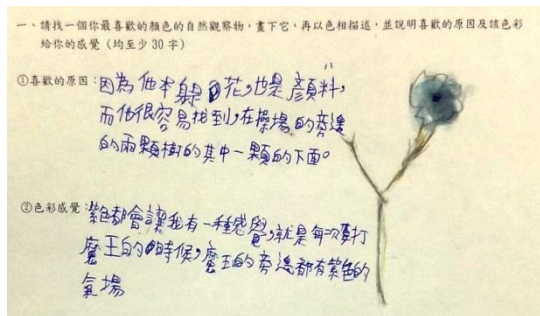 一、請找一個你最喜歡的顏色的自然觀察物，畫下它，再以色相描述，並說明喜歡的原因及該色彩
給你的感覺（均至少30字）
①喜歡的原因：因為他本躬花，也是顏料，
而他很容易找到，在操場的旁邊
的兩顆樹的其中一顆的下面。
②色彩感覺：紫色都會讓我有一種感覺，就是每次要打
魔王的時候，魔王的旁邊都有紫色的
氣場